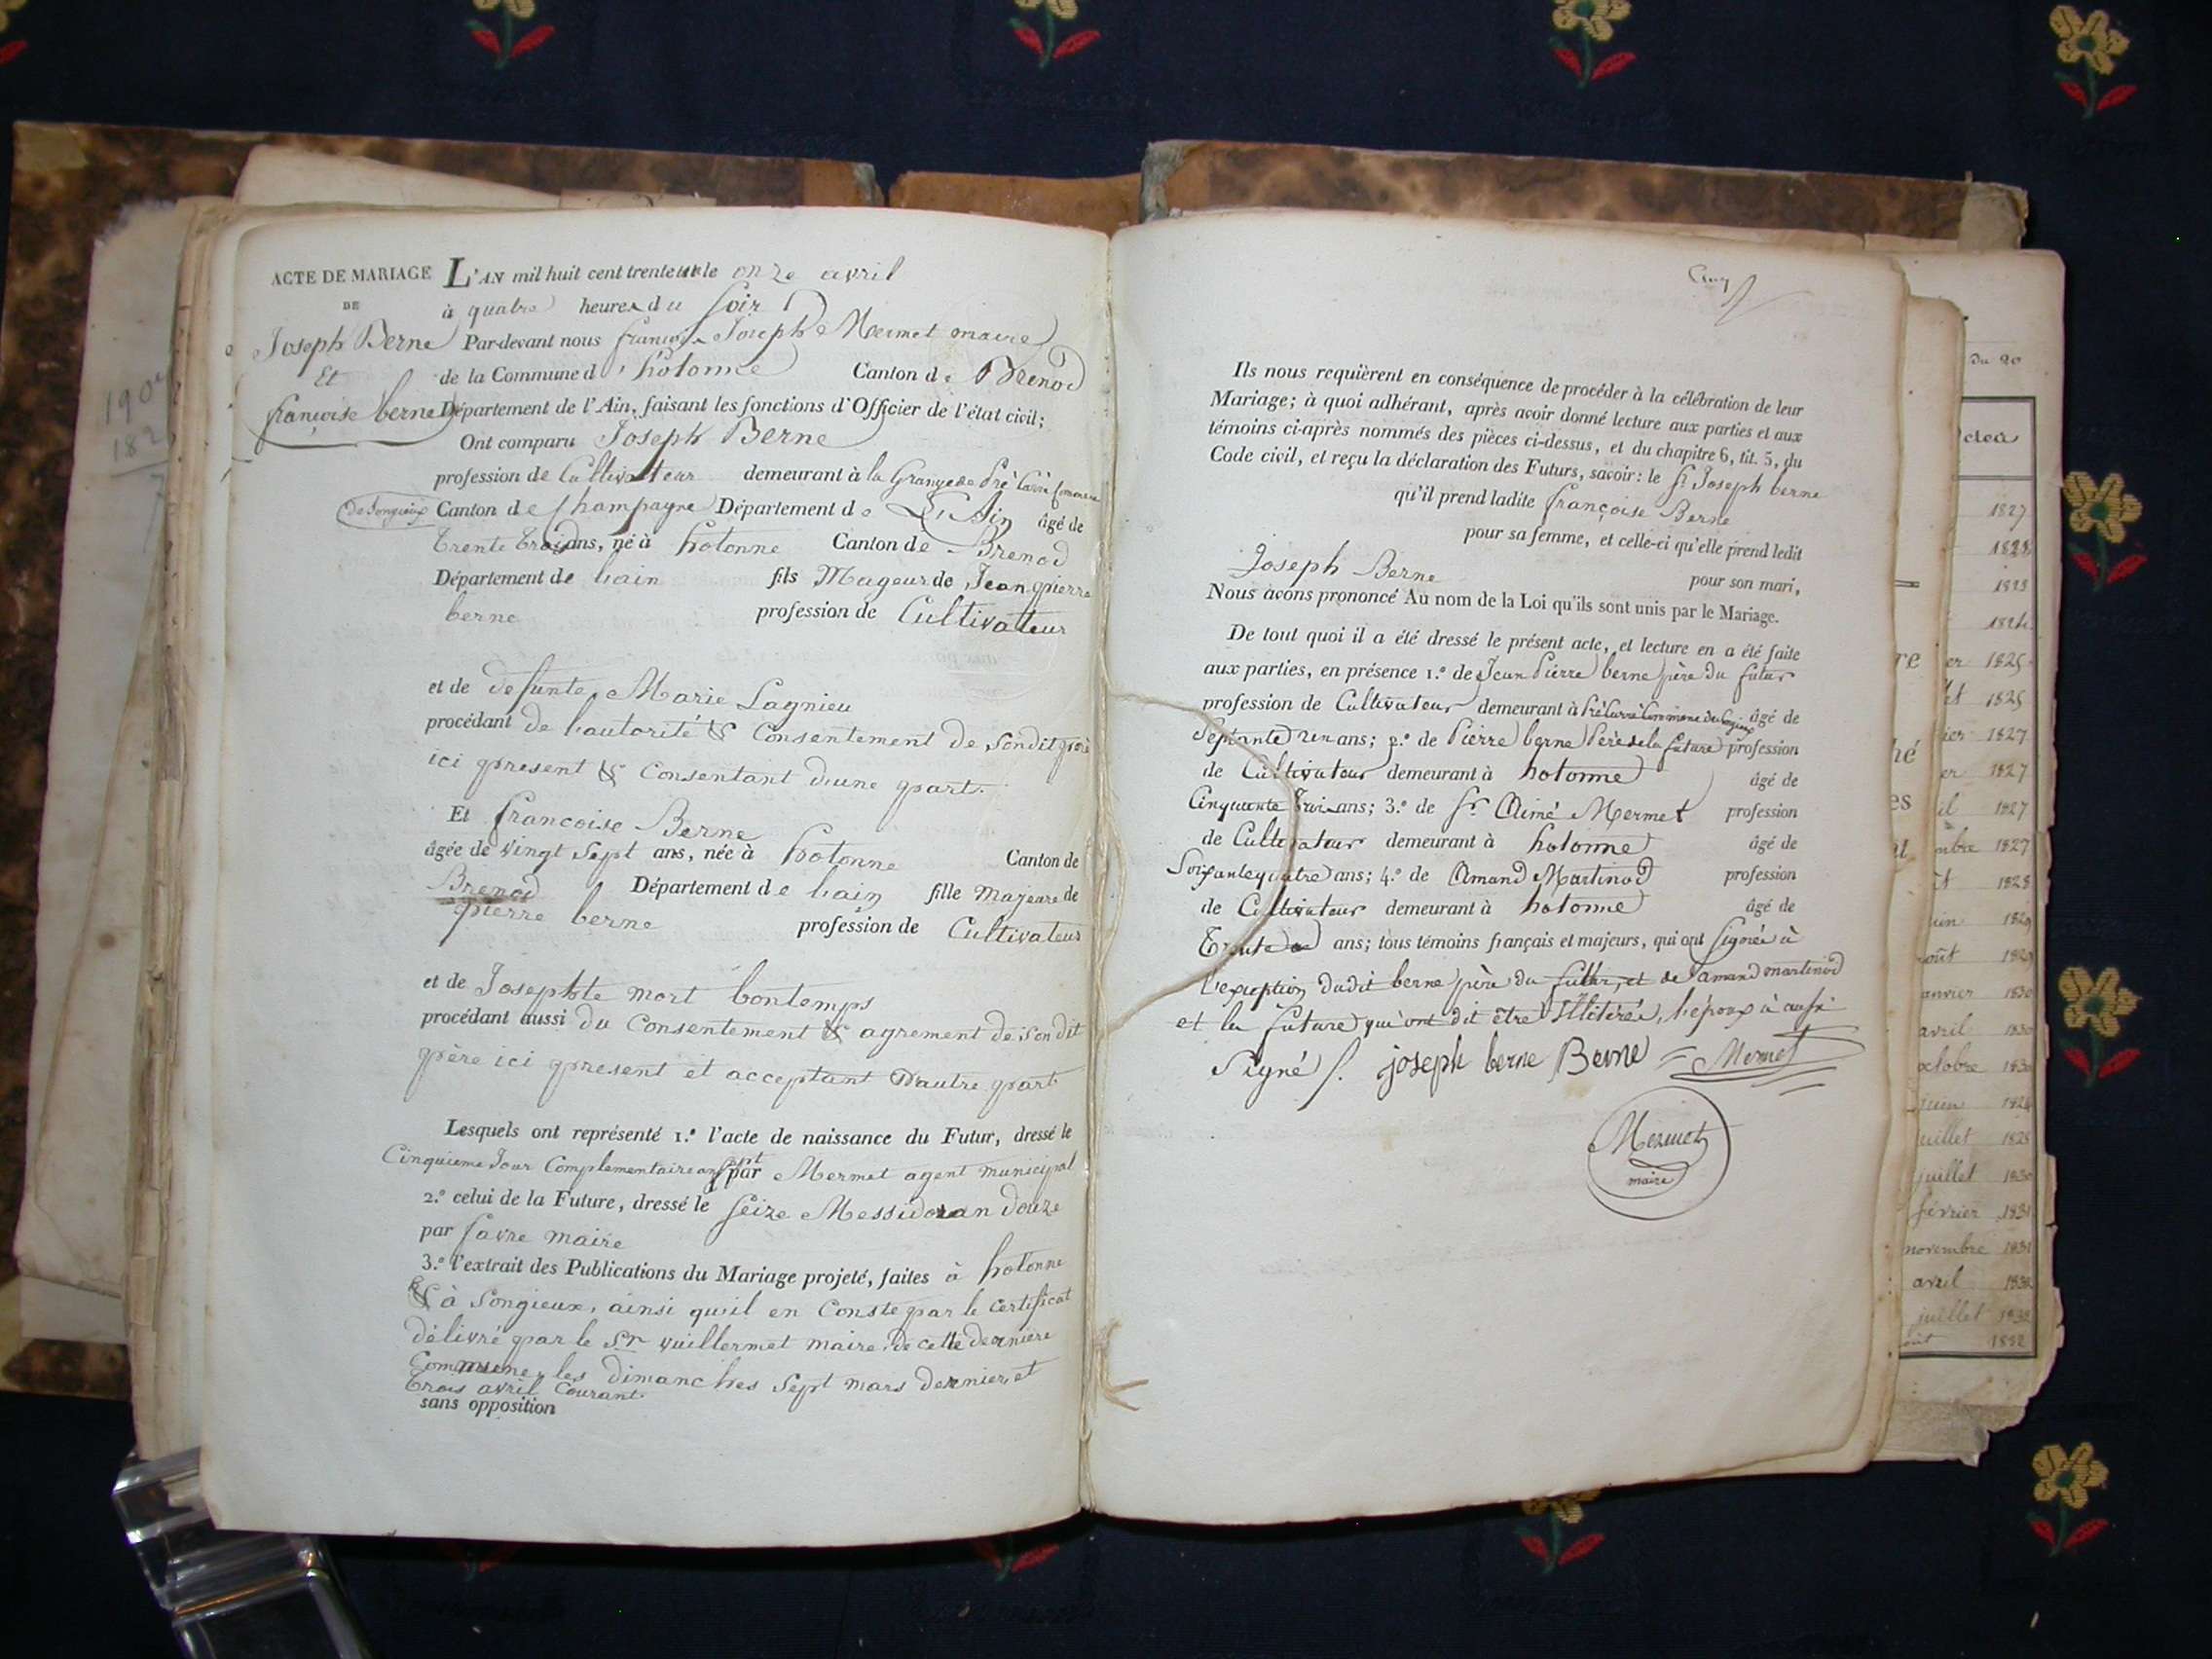 ACTE DE MARIAGE
DE
Joseph Berne
Et
françoise berne
L'AN mil huit cent trente un le onze avril
à quatre heures du soir
Par-devant nous françois Joseph Mermet maire
de la Commune d'hotonne Canton de Brenod
Département de l'Ain, faisant les fonctions d'Officier de l'état civil;
Ont comparu Joseph Berne
profession de Cultivateur demeurant à la Grange de Pré Carré Commune
de Songieux Canton de Champagne Département de L'Ain âgé de
trente trois ans, né à hotonne Canton de Brenod
Département de lain fils Mageur de Jean pierre
berne profession de Cultivateur
et de defunte Marie Lagnieu
procédant de lautorité & Consentement de Sondit père
ici present & Consentant dune part.
Et francoise Berne
âgée de vingt Sept ans, née à hotonne Canton de
Brenod Département de lain fille majeure de
pierre berne profession de Cultivateur
et de Josephte mort bontemps
procédant aussi du Consentement & agrement de Son dit
père ici present et acceptant D'autre part
Lesquels ont représenté 1.º l'acte de naissance du Futur, dressé le
Cinquieme Jour Complementaire an sept par Mermet agent municipal
2.º celui de la Future, dressé le seize Messidor an douze
par favre maire
3.º l'extrait des Publications du Mariage projeté, faites à hotonne
& à Songieux, ainsi quil en Conste par le certificat
délivré par le Sr vuillermet maire, de cette dernière
Commune, les dimanches Sept mars dernier, et
trois avril Courant.
sans opposition
Cinq
Ils nous requièrent en conséquence de procéder à la célébration de leur
Mariage; à quoi adhérant, après avoir donné lecture aux parties et aux
témoins ci-après nommés des pièces ci-dessus, et du chapitre 6, tit. 5, du
Code civil, et reçu la déclaration des Futurs, savoir: le Sr Joseph berne
qu'il prend ladite françoise Berne
pour sa femme, et celle-ci qu'elle prend ledit
Joseph Berne pour son mari,
Nous avons prononcé Au nom de la Loi qu'ils sont unis par le Mariage.
De tout quoi il a été dressé le présent acte, et lecture en a été faite
aux parties, en présence 1.º de Jean Pierre berne père du futur
profession de Cultivateur demeurant à Pré Carré Commune de Songieux âgé de
Septante un ans; 2.º de Pierre berne Père de la future profession
de Cultivateur demeurant à hotonne âgé de
Cinquante trois ans; 3.º de Sr Aimé Mermet profession
de Cultivateur demeurant à hotonne âgé de
Soixante quatre ans; 4.º de Amand Martinod profession
de Cultivateur demeurant à hotonne âgé de
trente ans; tous témoins français et majeurs, qui ont signée à
l'exception dudit berne père du futur, et de amand martinod
et la future qui ont dit être Illitérés, l'époux à aussi
Signé . joseph berne Berne Mermet
Mermet
maire
Du 20
1827
1828
1823
1824
er 1825
et 1825
ier 1827
er 1827
il 1827
mbre 1827
1828
uin 1829
août 1829
anvier 1830
avril 1830
octobre 1830
juillet 1828
juillet 1830
février 1831
novembre 1831
avril 1832
juillet 1832
oût 1832